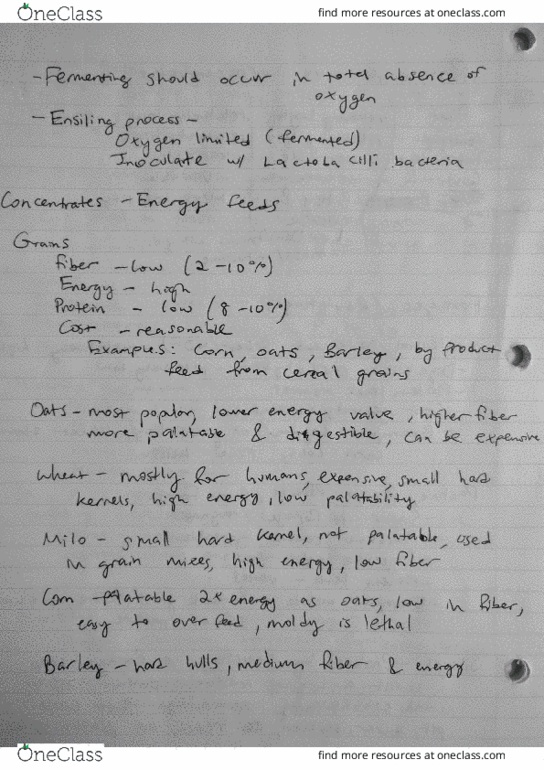 OneClass
find more resources at oneclass.com
- Fermenting should occur in total absence of
oxygen
- Ensiling process -
Oxygen limited (fermented)
Inoculate w/ Lactobacilli bacteria
Concentrates - Energy feeds
Grains
Fiber - low (2-10%)
Energy - high
Protein - low (8-10%)
Cost - reasonable
Examples: Corn, oats, Barley, by product
feed from cereal grains
Oats - most popular, lower energy value, higher fiber
more palatable & digestible, can be expensive
Wheat - mostly for humans, expensive, small hard
kernels, high energy, low palatability
Milo - small hard kernel, not palatable, used
in grain mixes, high energy, low fiber
Corn - Platable 2x energy as oats, low in fiber,
easy to over feed, moldy is lethal
Barley - hard hulls, medium fiber & energy
OneClass
find more resources at oneclass.com